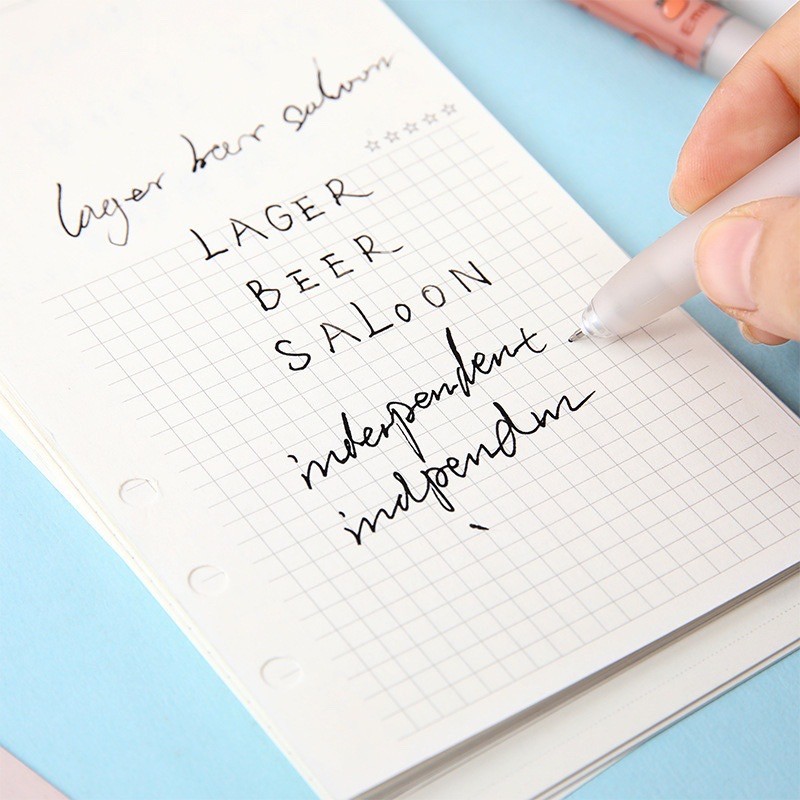 lager beer saloon
LAGER
BEER
SALOON
independent
indpendnr